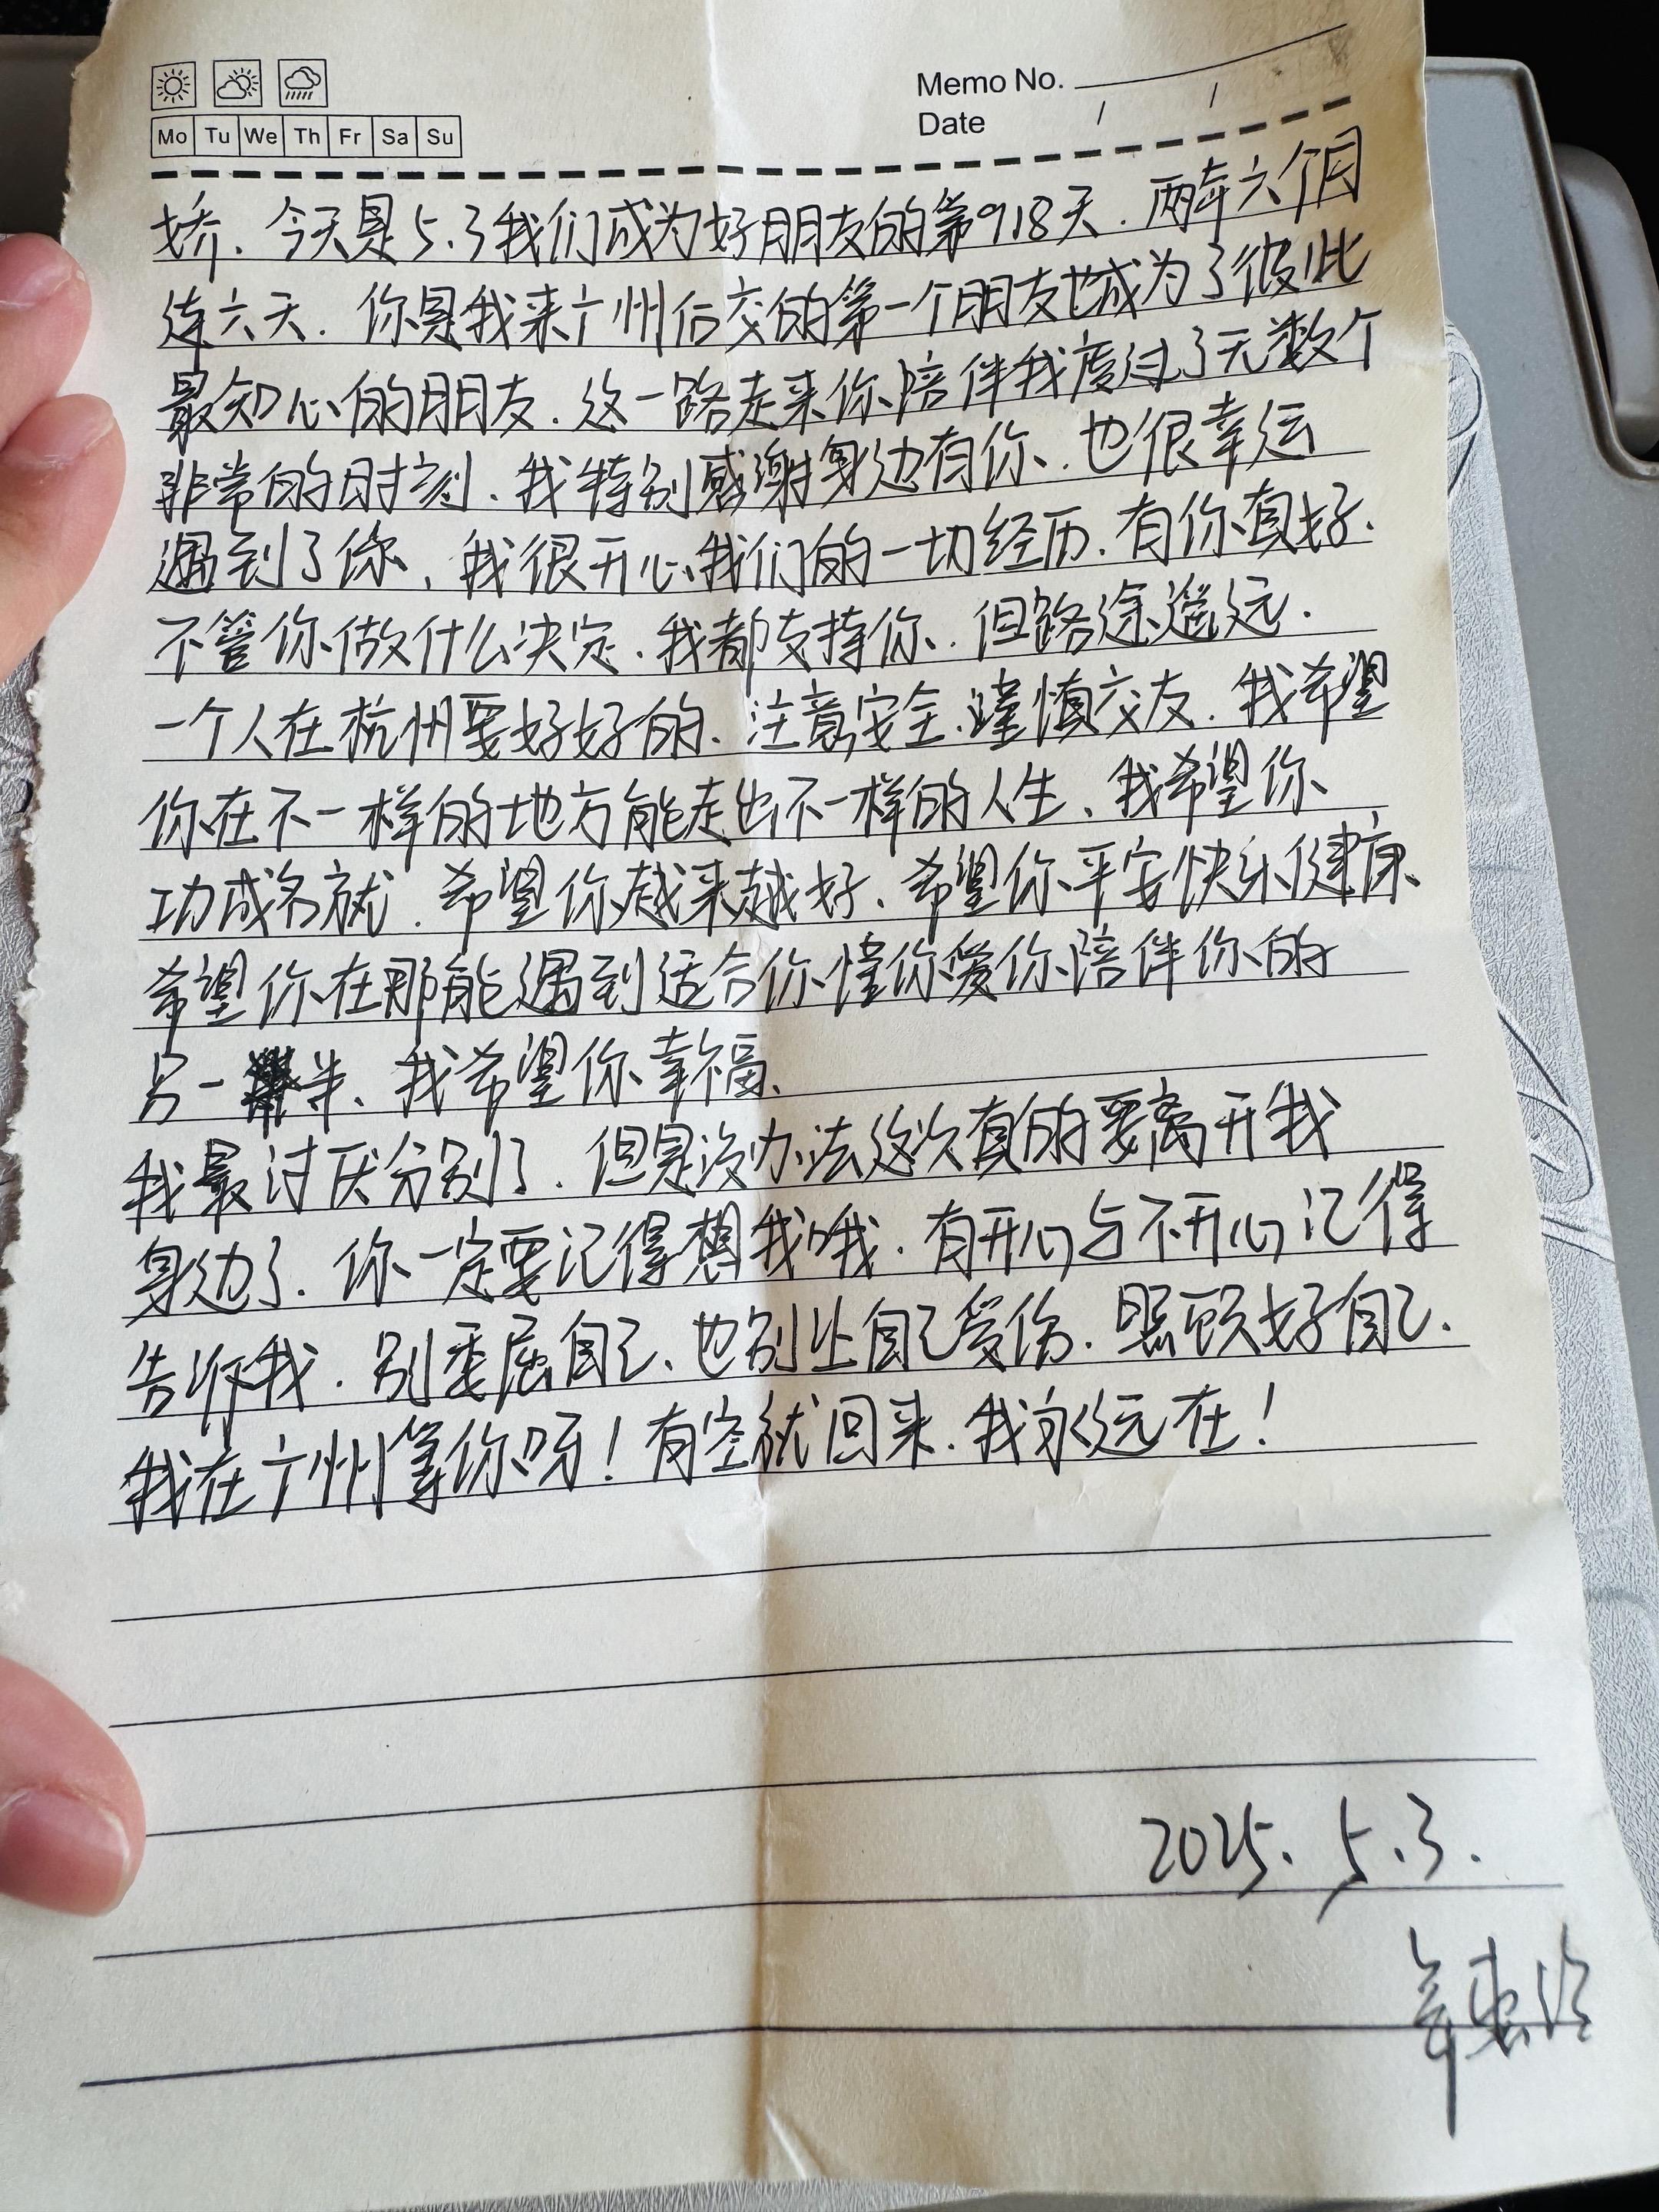 Memo No.
Mo Tu We Th Fr Sa Su
Date / /
娇、今天是5.3我们成为好朋友的第918天.两年六个月
连六天.你是我来广州后交的第一个朋友也成为了彼此
最知心的朋友.这一路走来你陪伴我度过了无数个
非常的时刻、我特别感谢身边有你、也很幸运
遇到了你、我很开心我们的一切经历.有你真好.
不管你做什么决定、我都支持你.但路途遥远.
一个人在杭州要好好的、注意安全、谨慎交友.我希望
你在不一样的地方能走出不一样的人生、我希望你
功成名就.希望你越来越好、希望你平安快乐健康
希望你在那能遇到适合你懂你爱你陪伴你的
另一半、我希望你幸福、
我最讨厌分别了.但是没办法这次真的要离开我
身边了.你一定要记得想我哦.有开心与不开心记得
告诉我.别委屈自己、也别让自己受伤.照顾好自己.
我在广州等你呀!有空就回来.我永远在!
2025.5.3.